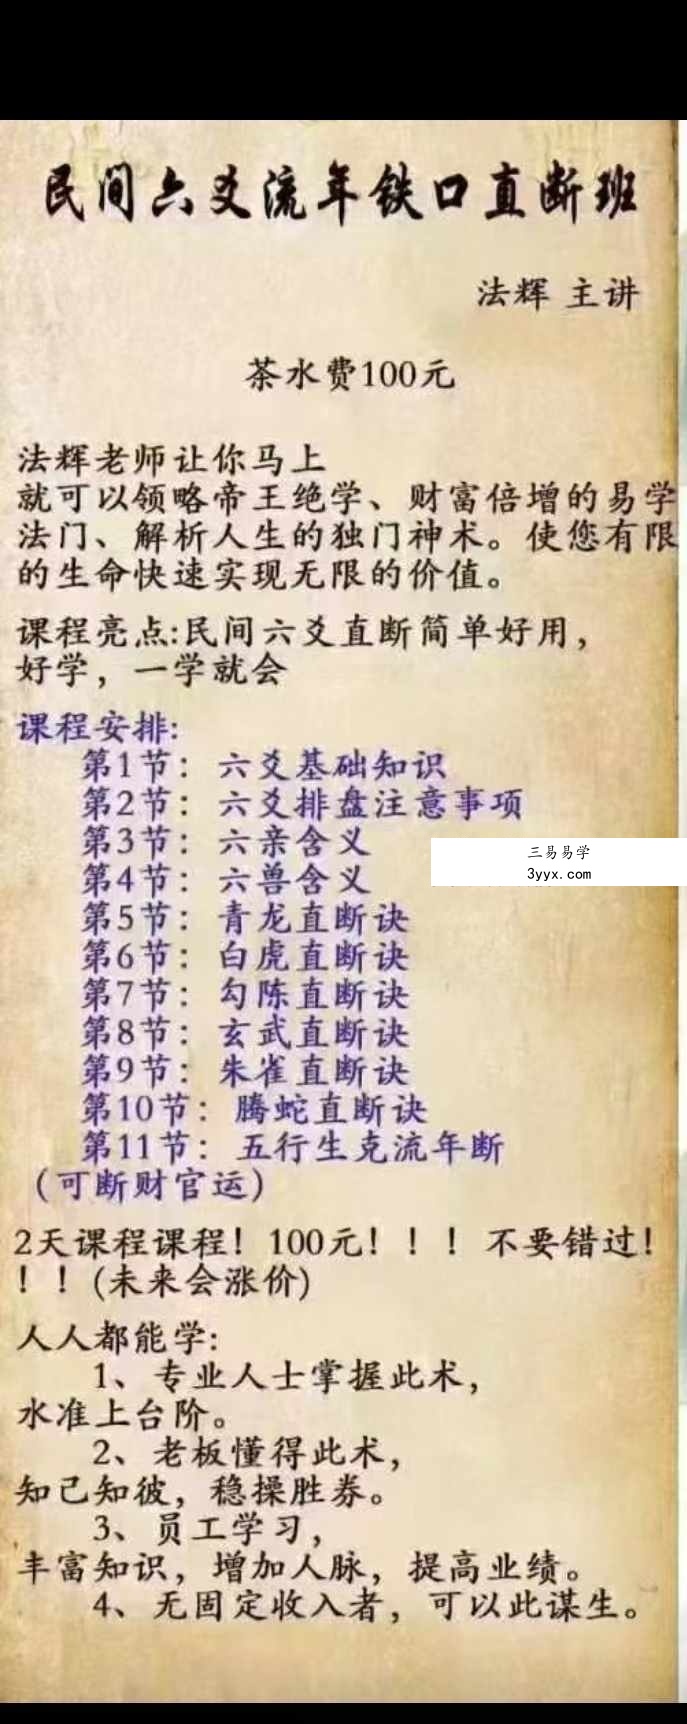 民间六爻流年铁口直断班
法辉 主讲
茶水费100元
法辉老师让你马上
就可以领略帝王绝学、财富倍增的易学
法门、解析人生的独门神术。使您有限
的生命快速实现无限的价值。
课程亮点:民间六爻直断简单好用，
好学，一学就会
课程安排:
第1节：六爻基础知识
第2节：六爻排盘注意事项
第3节：六亲含义
三易易学
第4节：六兽含义
3yyx.com
第5节：青龙直断诀
第6节：白虎直断诀
第7节：勾陈直断诀
第8节：玄武直断诀
第9节：朱雀直断诀
第10节：腾蛇直断诀
第11节：五行生克流年断
（可断财官运）
2天课程课程！100元！！！不要错过！
！！(未来会涨价)
人人都能学:
1、专业人士掌握此术，
水准上台阶。
2、老板懂得此术，
知己知彼，稳操胜券。
3、员工学习，
丰富知识，增加人脉，提高业绩。
4、无固定收入者，可以此谋生。